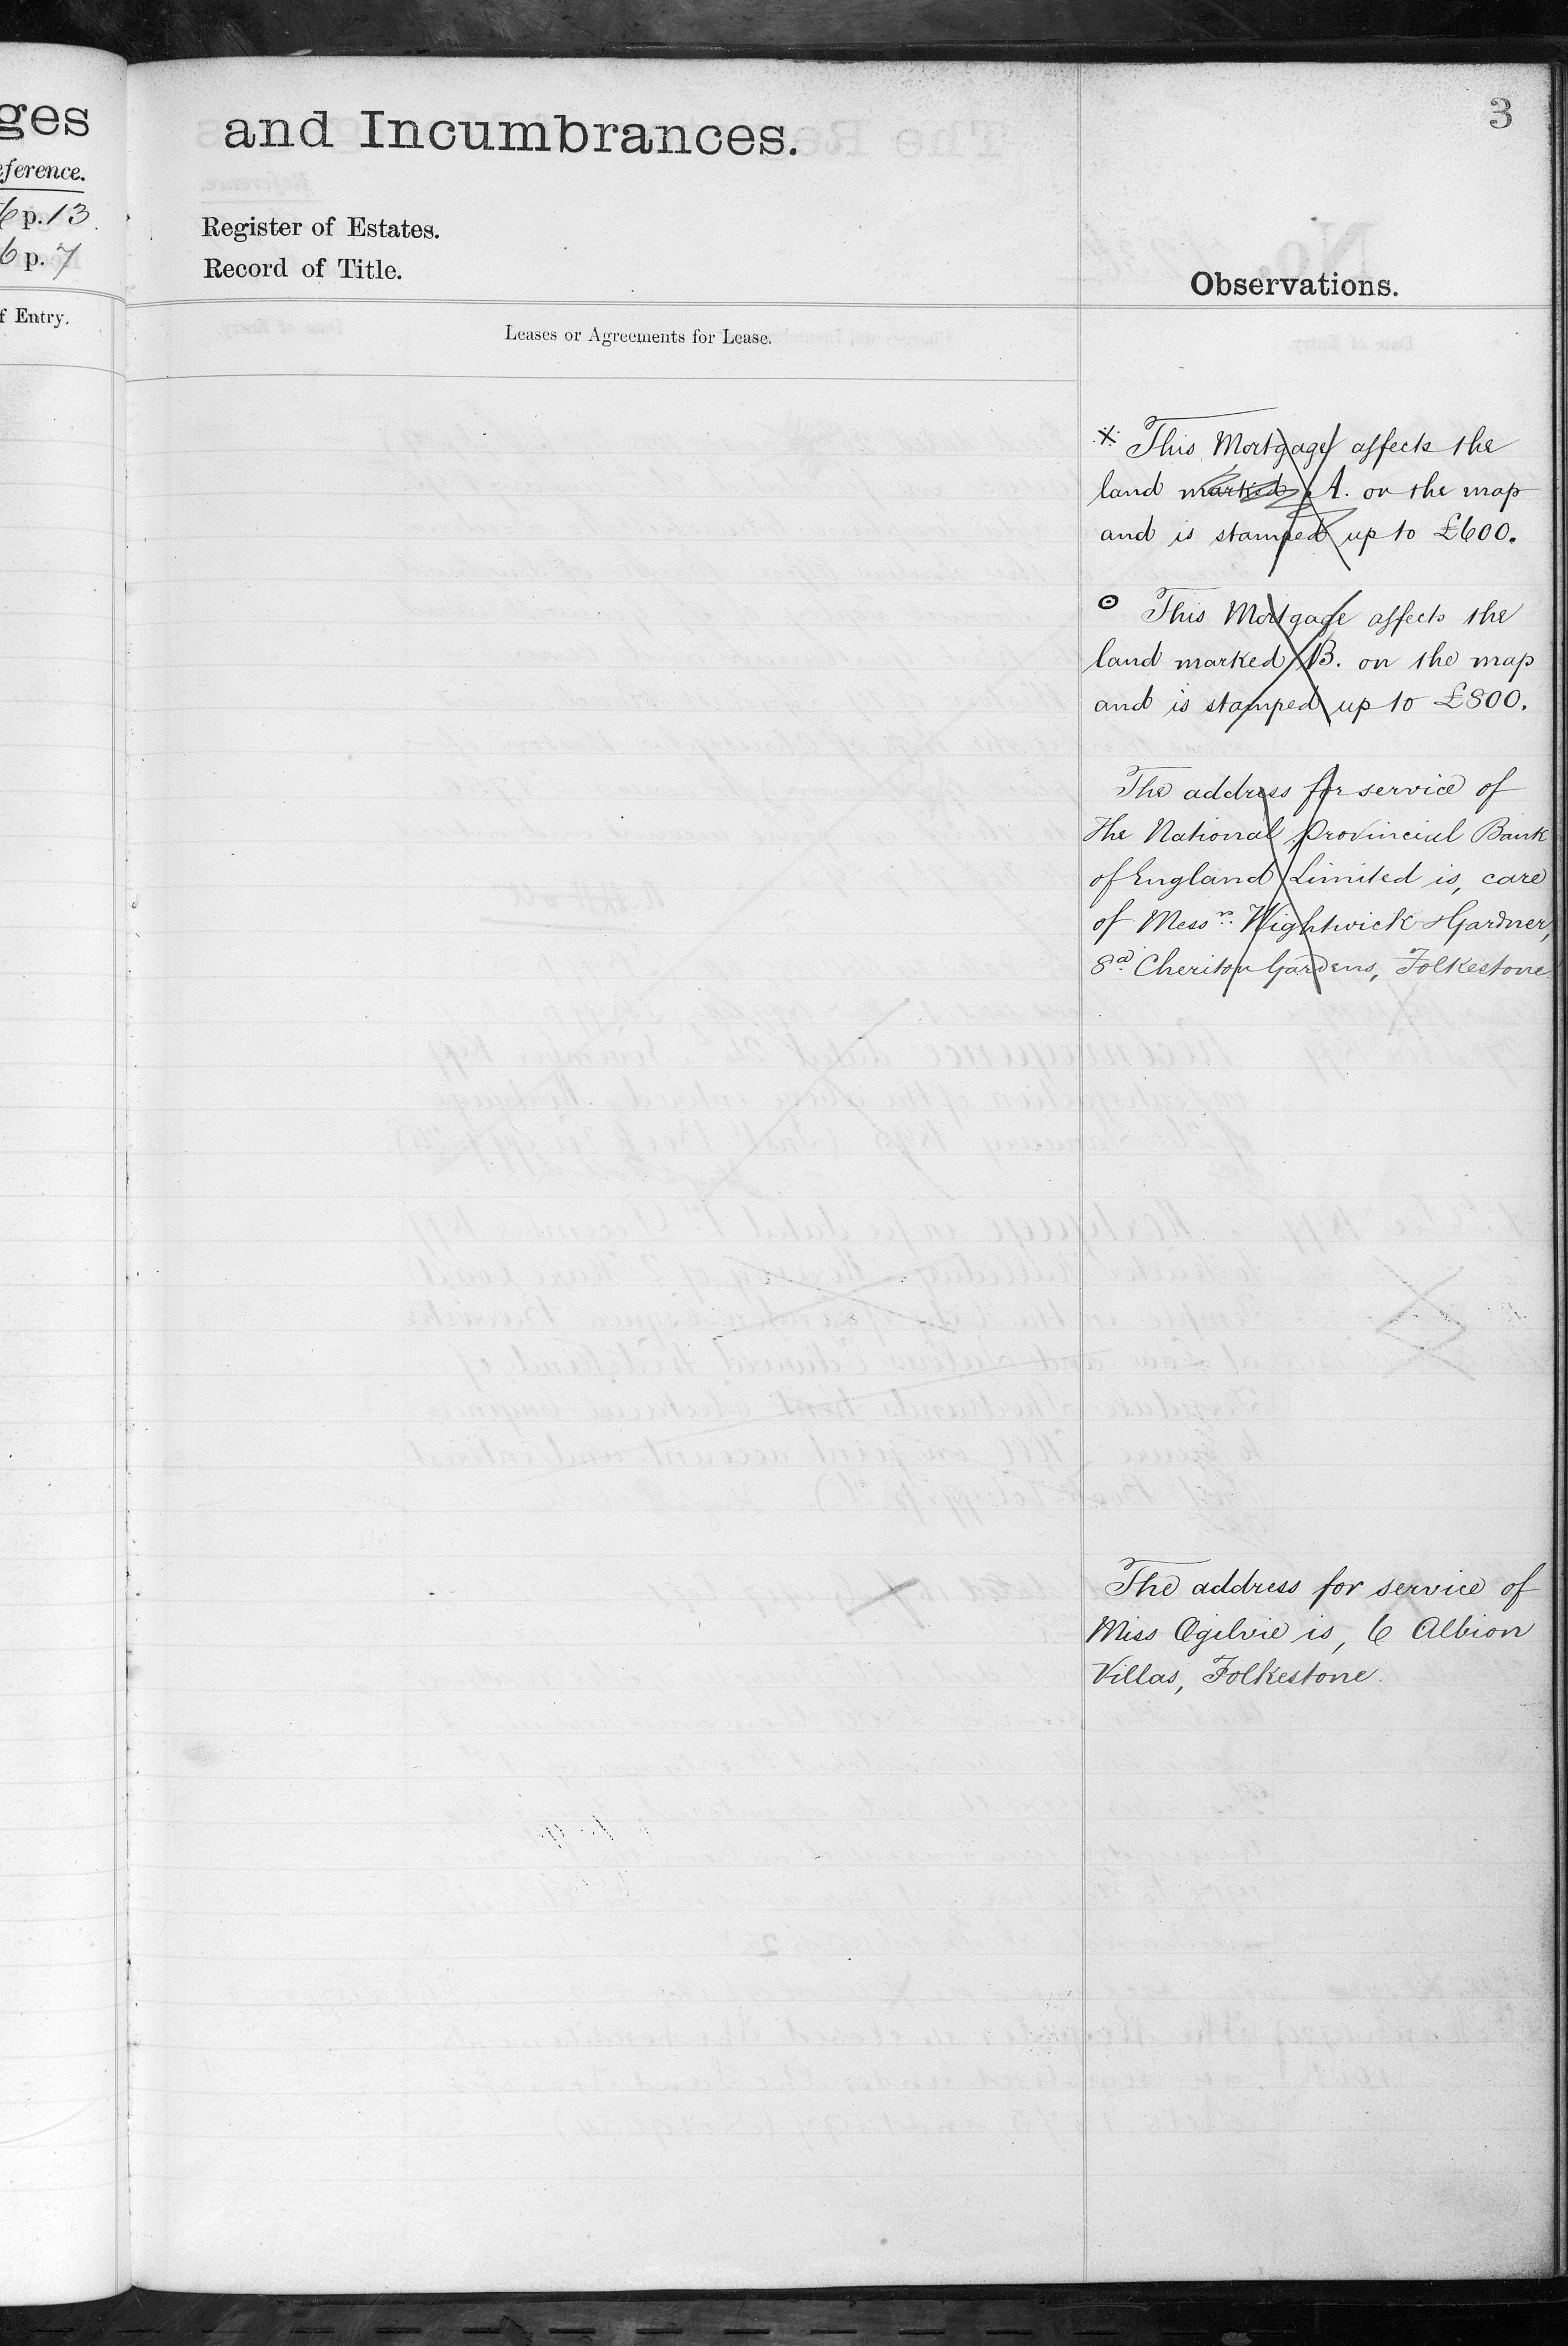 ges
eference.
6 p. 13.
6 p. 7
f Entry.
3
and Incumbrances.
Register of Estates.
Record of Title.
Observations.
Leases or Agreements for Lease.
This Mortgage affects the
land marked A. on the map
and is stamped up to £600.
This Mortgage affects the
land marked B. on the map
and is stamped up to £800.
The address for service of
The National Provincial Bank
of England Limited is, care
of Messrs. Wightwick & Gardner,
8a. Cheriton Gardens, Folkestone.
The address for service of
Miss Ogilvie is, 6 Albion
Villas, Folkestone.